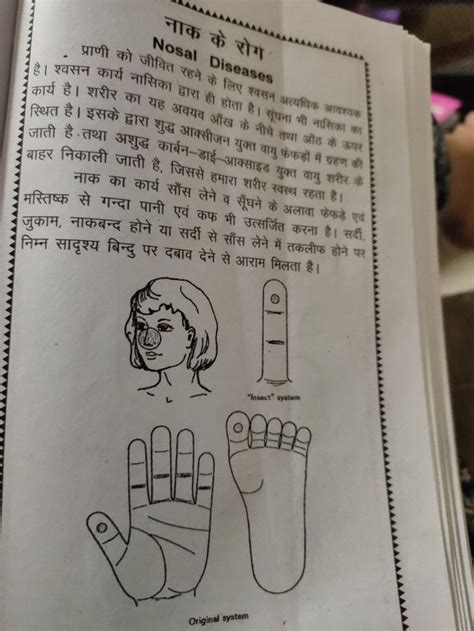 नाक के रोग
Nosal Diseases
प्राणी को जीवित रहने के लिए श्वसन अत्यधिक आवश्यक
है। श्वसन कार्य नासिका द्वारा ही होता है। सूंघना भी नासिका का
कार्य है। शरीर का यह अवयव आँख के नीचे तथा ओंठ के ऊपर
स्थित है। इसके द्वारा शुद्ध आक्सीजन युक्त वायु फेफड़ों में ग्रहण की
जाती है तथा अशुद्ध कार्बन–डाई–आक्साइड युक्त वायु शरीर के
बाहर निकाली जाती है, जिससे हमारा शरीर स्वस्थ रहता है।
नाक का कार्य साँस लेने व सूँघने के अलावा फेफड़े एवं
मस्तिष्क से गन्दा पानी एवं कफ भी उत्सर्जित करना है। सर्दी,
जुकाम, नाकबन्द होने या सर्दी से साँस लेने में तकलीफ होने पर
निम्न सादृश्य बिन्दु पर दबाव देने से आराम मिलता है।
"Insect" system
Original system